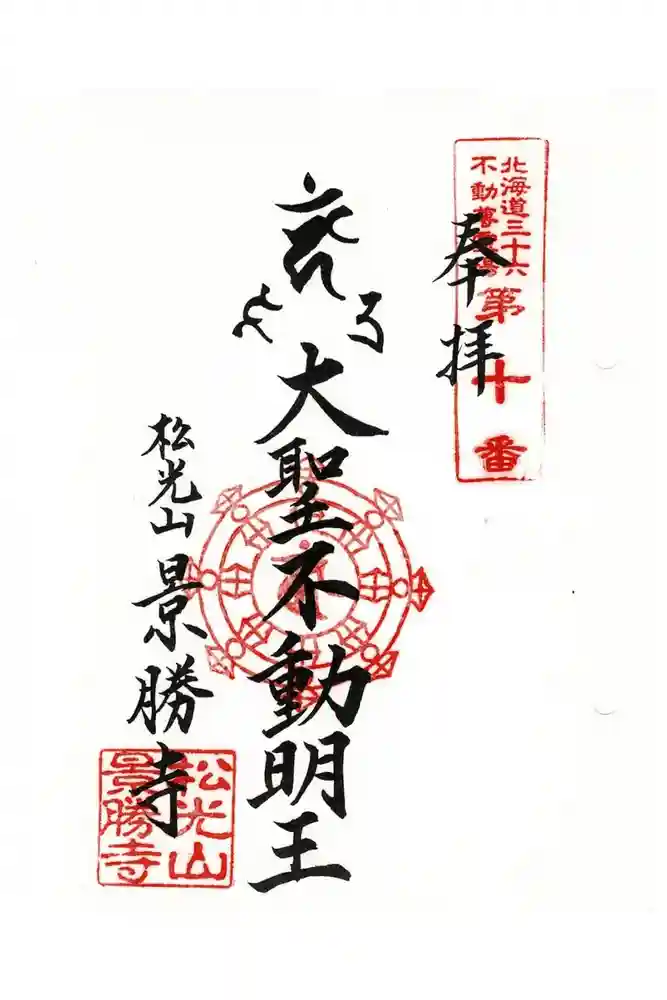 北海道三十六
不動尊霊場
第十番
奉拝
大聖不動明王
松光山 景勝寺
松光山
景勝寺